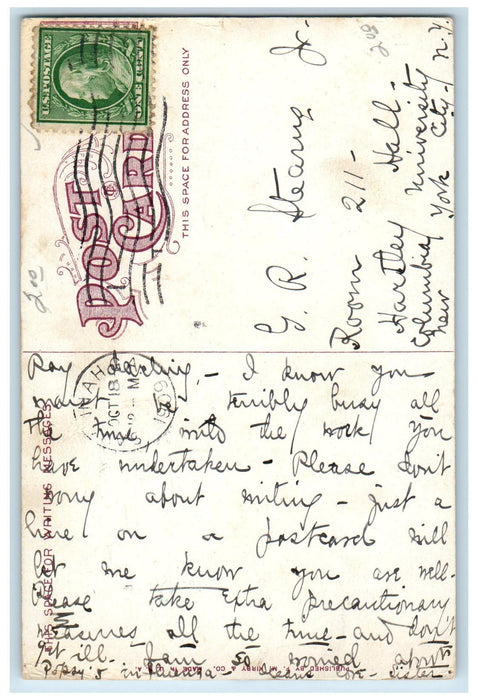 U.S. POSTAGE
ONE CENT
POST CARD
THIS SPACE FOR ADDRESS ONLY
G. R. Stearns Jr-
Room 211-
Hartley Hall-
Columbia University
New York City- N.Y.
2.00
OMAHA
OCT 18
1909
THIS SPACE FOR WRITING MESSAGES
Ray darling,- I know you
must be terribly busy all
the time, with the work you
have undertaken- Please don't
worry about writing- just a
line on a postcard will
let me know you are well-
Please take extra precautionary
measures all the time- and don't
get ill- I am so worried about
Poppy's Love- Sister
PUBLISHED BY McKIRBY & CO. MADE IN U.S.A.